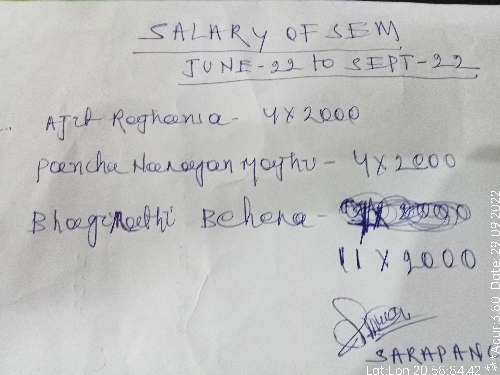 SALARY OF SEM
JUNE-22 to SEPT-22
Ajit - 4 X 2000
Pancha Narayan - 4 X 2000
Bhagirathi Behera -
11 X 2000
SARAPANC
Lat:Lon 20.58:84.42 ** Acur:3.80 Date: 29.09.2022